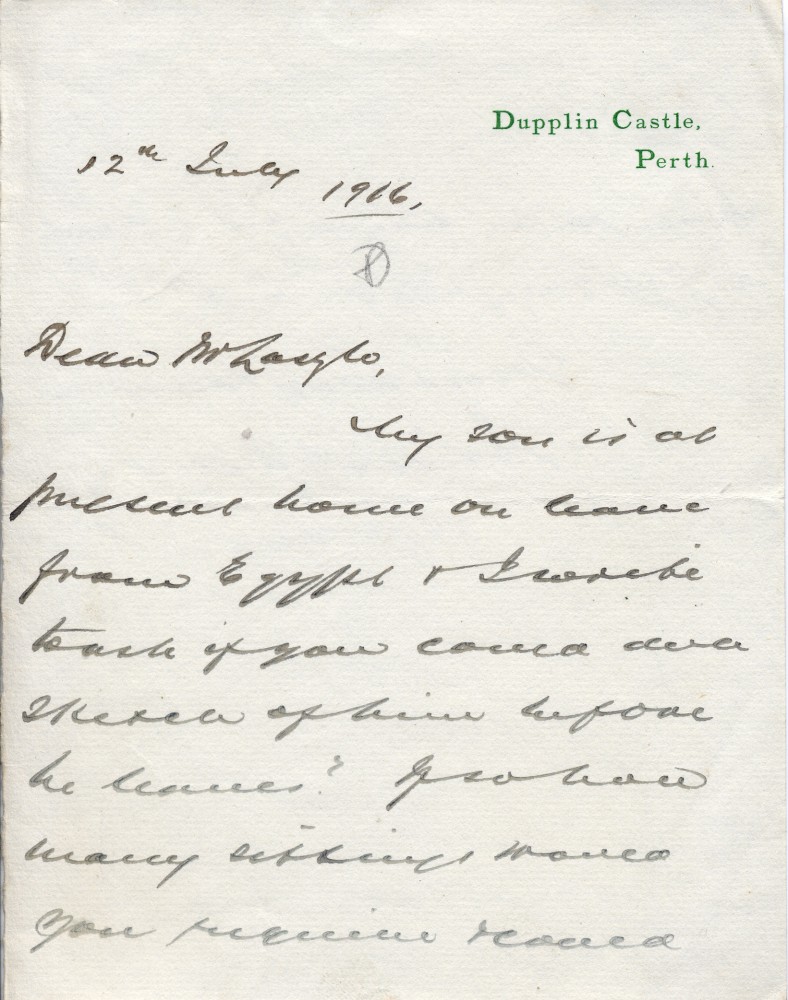 Dupplin Castle,
Perth.
12th July 1916,
Dear Mr Laszlo,
My son is at
present home on leave
from Egypt & I write
to ask if you could do a
sketch of him before
he leaves? If so how
many sittings would
you require & could